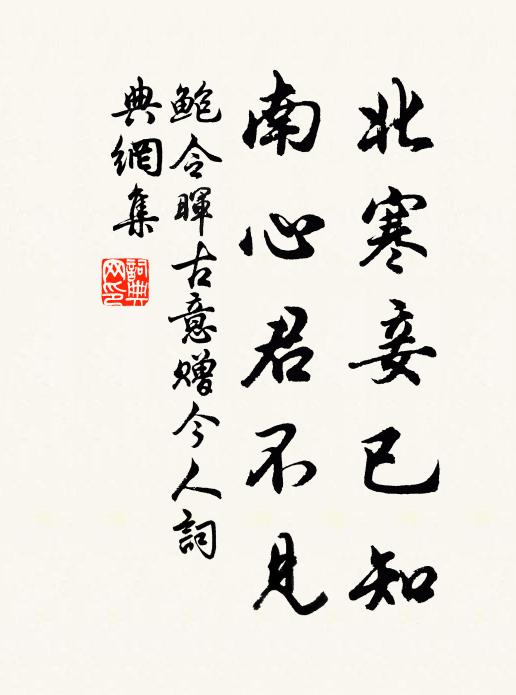 北寒妾已知
南心君不見
鮑令暉古意贈今人詞
典網集
詞典
网印